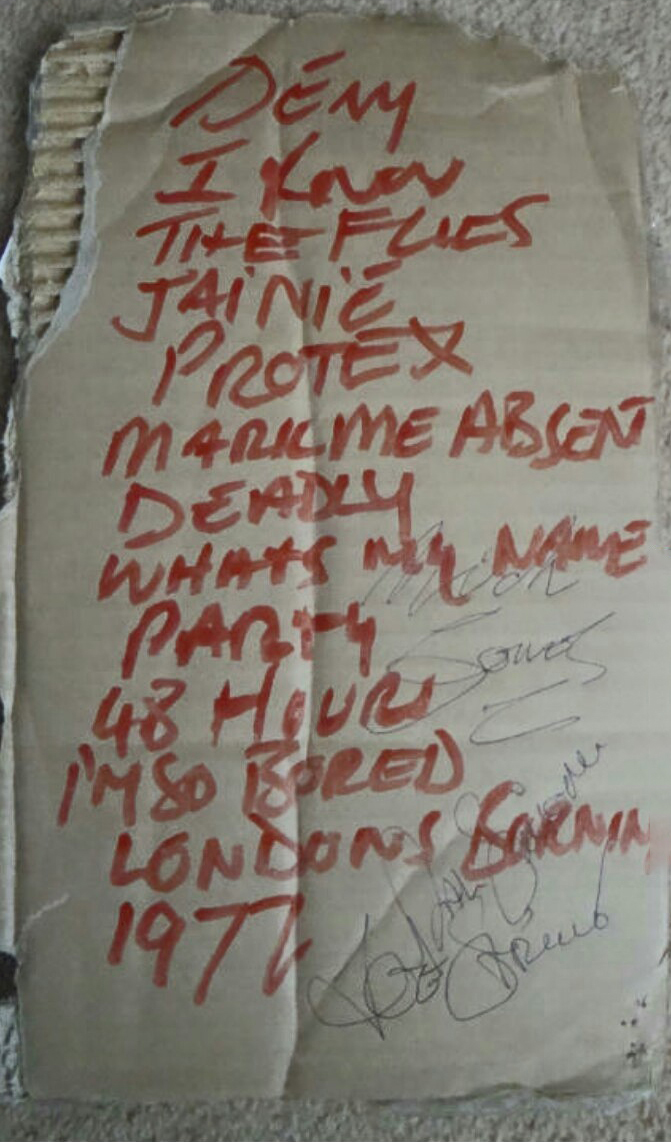 DENY
I KNOW
THE FLIES
JAINIE
PROTEX
MARK ME ABSENT
DEADLY
WHATS MY NAME
PARTY
48 HOURS
I'M SO BORED
LONDONS BURNIN
1977
Mick
Jones
Joe Strummer